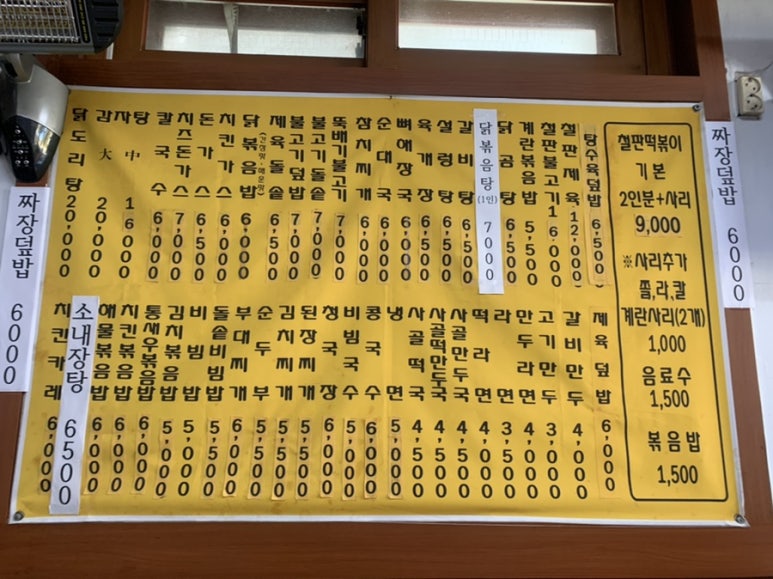 짜장덮밥 6000
닭도리탕 20,000
감자탕 大 20,000 中 16000
칼국수 6,000
치즈돈가스 7,000
돈가스 6,500
치킨가스 6,500
닭볶음밥 (간장맛·매운맛) 6,000
제육돌솥 6,500
불고기덮밥 7,000
불고기돌솥 7,000
뚝배기불고기 7,000
참치찌개 6,000
순대국 6,000
뼈해장국 6,000
육개장 6,500
설렁탕 6,500
갈비탕 6,500
닭볶음탕 (1인) 7000
닭곰탕 6,500
계란볶음밥 5,500
철판불고기 16,000
철판제육 12,000
탕수육덮밥 6,500
치킨카레 6,000
소내장탕 6500
해물볶음밥 6,000
치킨볶음밥 6,000
통새우볶음밥 6,000
김치볶음밥 5,000
비빔밥 5,000
돌솥비빔밥 5,500
부대찌개 6,000
순두부 5,500
김치찌개 5,500
된장찌개 5,500
청국장 5,500
비빔국수 5,500
콩국수 6,000
냉면 5,000
사골떡국 4,500
사골떡만두국 4,500
사골만두국 4,500
떡라면 4,000
라면 3,500
만두라면 4,000
고기만두 3,000
갈비만두 4,000
제육덮밥 6,000
철판떡볶이
기본
2인분+사리
9,000
※사리추가
쫄,라,칼
계란사리(2개)
1,000
음료수
1,500
볶음밥
1,500
짜장덮밥 6000